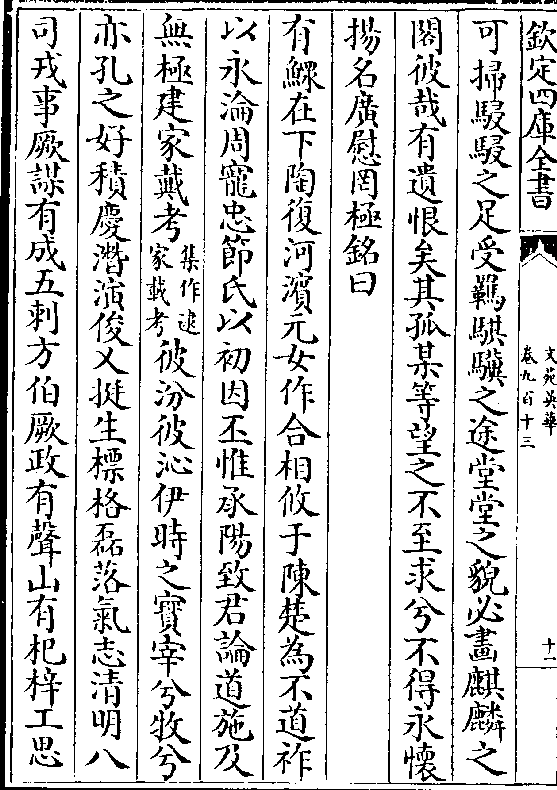 欽定四庫全書
文苑英華
卷九百十三
十一
可掃駸駸之足受羈騏驥之途堂堂之貌必畫麒麟之
閣彼哉有遺恨矣其孤某等望之不至求兮不得永懷
揚名廣慰罔極銘曰
有鰥在下陶復河濱元女作合相攸于陳楚為不道祚
以永淪周寵忠節氏以初因丕惟承陽致君論道施及
無極建家戴考集作逮家載考彼汾彼沁伊時之寳宰兮牧兮
亦孔之好積慶潛演俊乂挺生標格磊落氣志清明八
司戎事厥謀有成五刺方伯厥政有聲山有杞梓工思